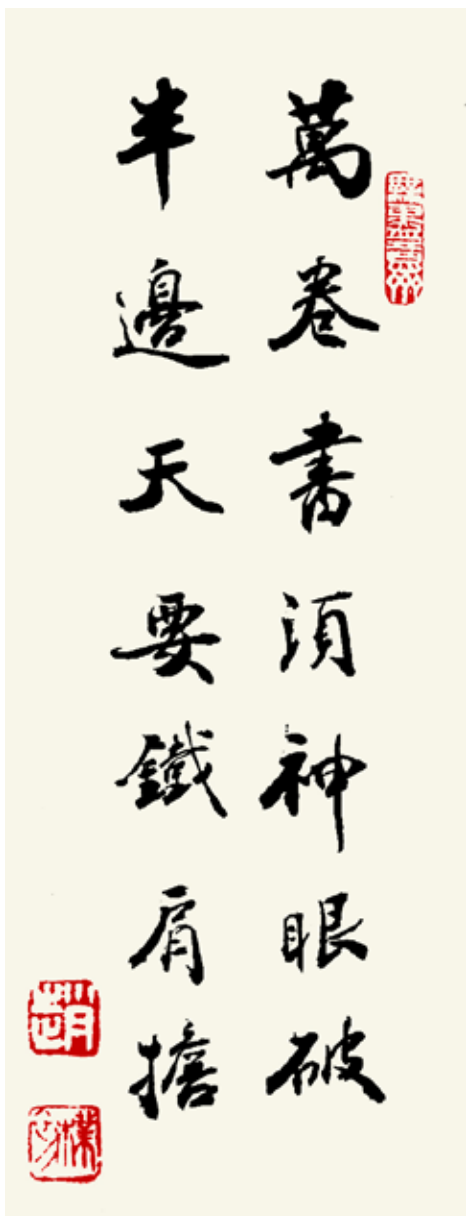 萬卷書須神眼破
半邊天要鐵肩擔
趙